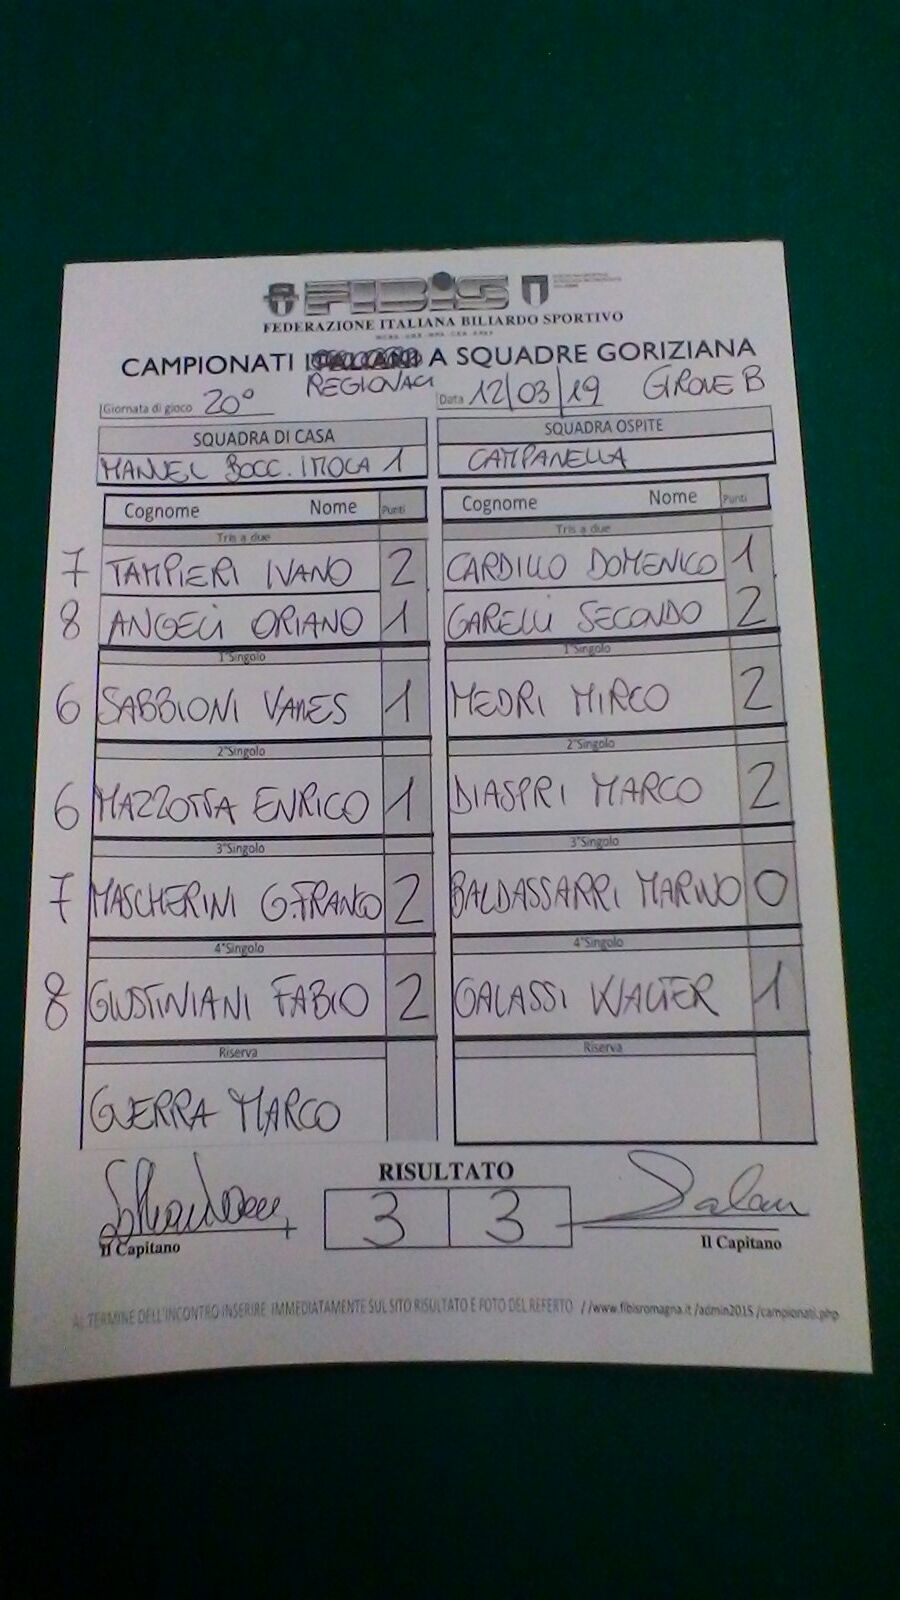 FIBIS
FEDERAZIONE ITALIANA BILIARDO SPORTIVO
CAMPIONATI ITALIANI A SQUADRE GORIZIANA
REGIONALI
Giornata di gioco 20° Data 12/03/19 GIRONE B
SQUADRA DI CASA SQUADRA OSPITE
MANUEL BOCC. IMOLA 1 CAMPANELLA
Cognome Nome Punti Cognome Nome Punti
Tris a due Tris a due
7 TAMPIERI IVANO 2 CARDILLO DOMENICO 1
8 ANGELI ORIANO 1 GARELLI SECONDO 2
1°Singolo 1°Singolo
6 SABBIONI VANES 1 MEDRI MIRCO 2
2°Singolo 2°Singolo
6 MAZZOTTA ENRICO 1 DIASPRI MARCO 2
3°Singolo 3°Singolo
7 MASCHERINI G.FRANCO 2 BALDASSARRI MARINO 0
4°Singolo 4°Singolo
8 GIUSTINIANI FABIO 2 GALASSI WALTER 1
Riserva Riserva
GUERRA MARCO
RISULTATO
3 3
Il Capitano Il Capitano
AL TERMINE DELL'INCONTRO INSERIRE IMMEDIATAMENTE SUL SITO RISULTATO E FOTO DEL REFERTO //www.fibisromagna.it /admin2015 /campionati.php